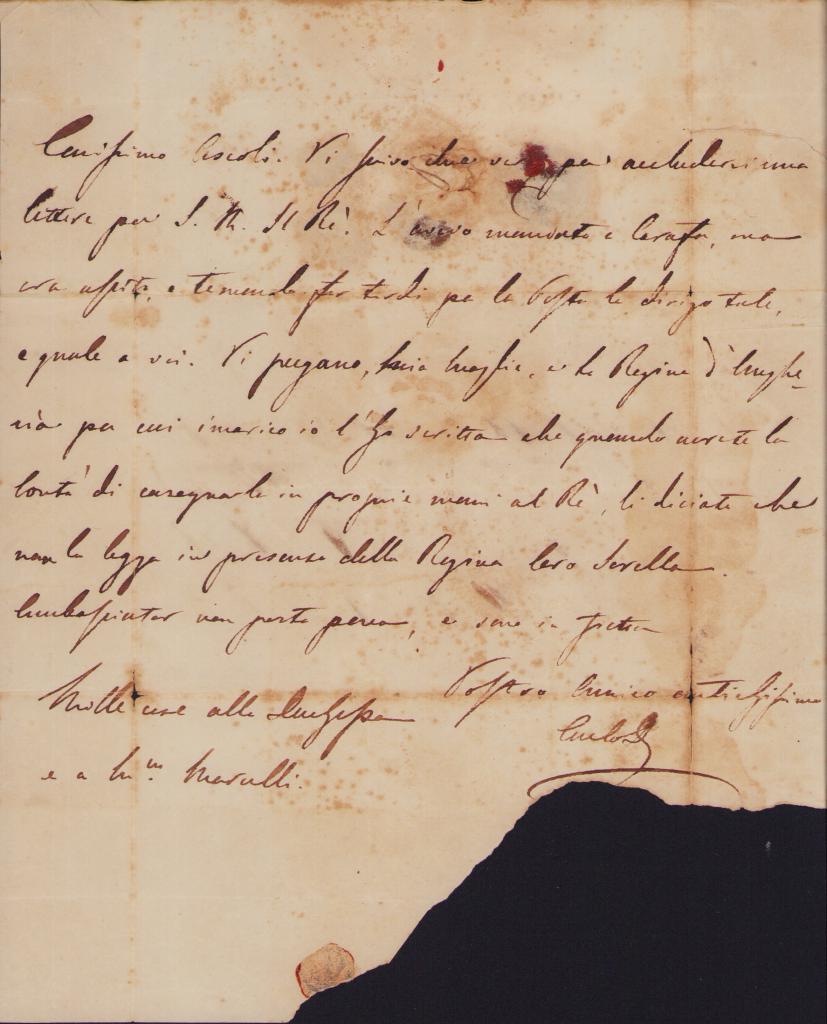 Carissimo Ascoli. Vi scrivo due per accludervi una
lettera per S. M. Il Rè. L'avevo mandata a Carafa, ma
era uscita, e temendo far tardi per la Posta la dirigo tale,
e quale a voi. Vi pregano, mia Moglie, e la Regina d'Unghe-
ria per cui incarico io l'ho scritta che quando avrete la
bontà di consegnarla in proprie mani al Rè, li diciate che
non la legga in presenza della Regina loro Sorella.
non porta pena, e sono in fretta
Vostro Amico antichissimo
Mille cose alla Duchessa
Carlo
e a M.m Marulli.